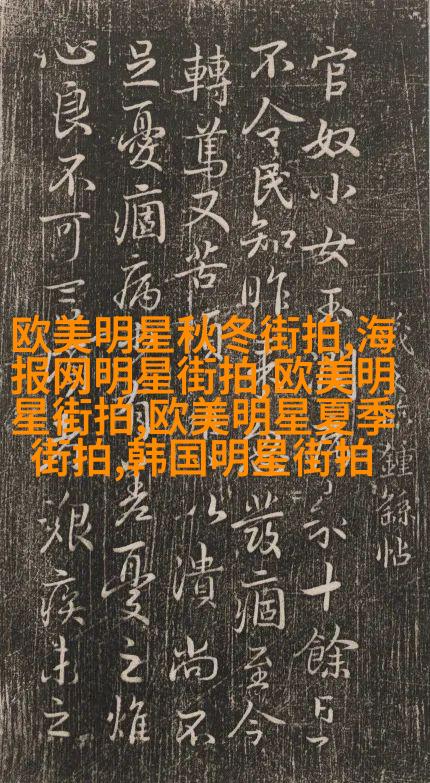 欧美明星秋冬街拍,海
报网明星街拍,欧美明
星街拍,欧美明星夏季
街拍,韩国明星街拍
鍾繇帖
官奴小女玉十餘日
不令民知昨來發痼至今
轉篤又苦頭以潰尚不
足憂痼病有差憂之燋
心良不可言艱疾未之